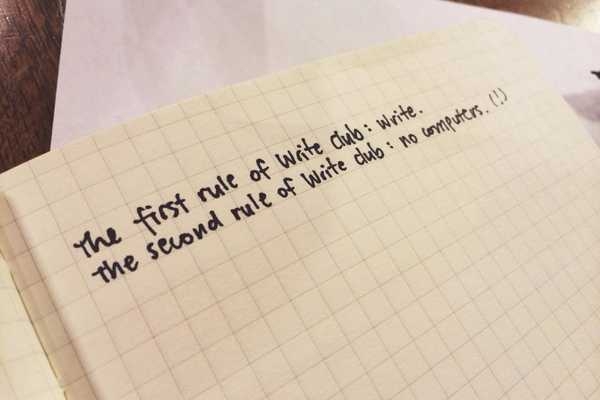 The first rule of Write Club: write.
The second rule of Write Club: no computers. (!)